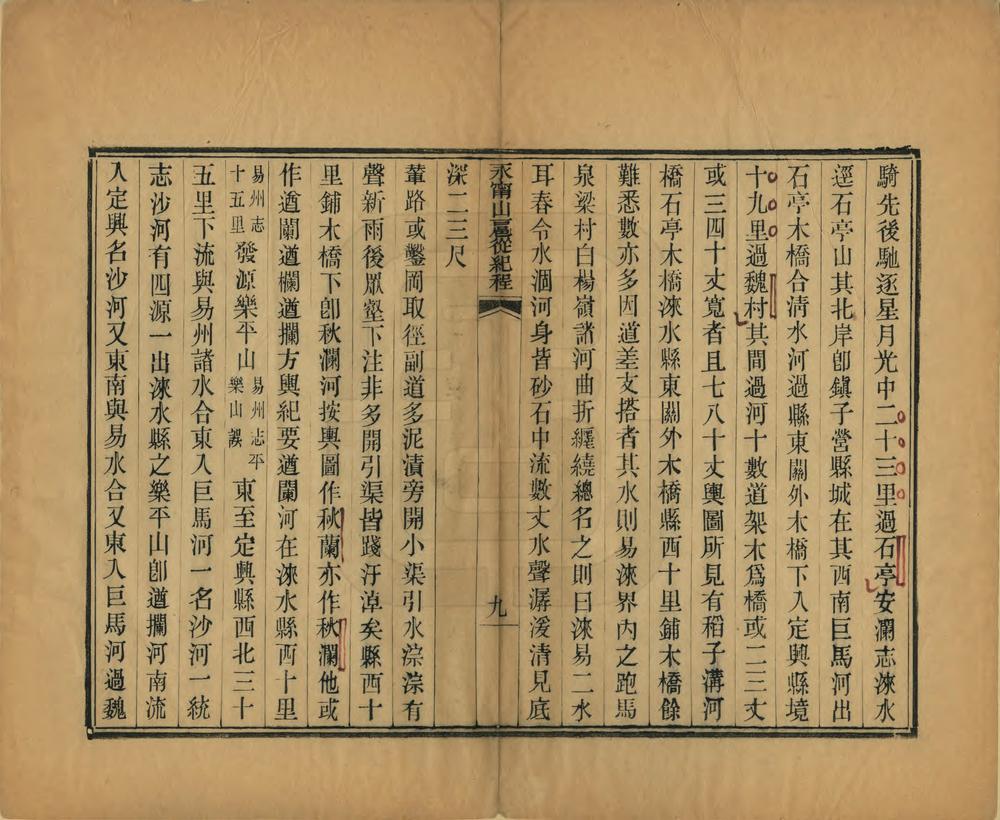 騎先後馳逐星月光中二十三里過石亭安瀾志淶水
逕石亭山其北岸卽鎭子營縣城在其西南巨馬河出
石亭木橋合清水河過縣東關外木橋下入定興縣境
十九里過魏村其間過河十數道架木爲橋或二三丈
或三四十丈寬者且七八十丈輿圖所見有稻子溝河
橋石亭木橋淶水縣東關外木橋縣西十里鋪木橋餘
難悉數亦多因道差支搭者其水則易淶界內之跑馬
泉梁村白楊嶺諸河曲折纒繞總名之則曰淶易二水
耳春令水涸河身皆砂石中流數丈水聲潺湲清見底
深二三尺
永甯山扈從紀程
九
輦路或鑿岡取徑副道多泥漬旁開小渠引水淙淙有
聲新雨後眾壑下注非多開引渠皆踐汙淖矣縣西十
里鋪木橋下卽秋瀾河按輿圖作秋蘭亦作秋瀾他或
作遒闌遒欄遒攔方輿紀要遒闌河在淶水縣西十里
易州志
十五里
發源樂平山
易州志平
樂山誤
東至定興縣西北三十
五里下流與易州諸水合東入巨馬河一名沙河一統
志沙河有四源一出淶水縣之樂平山卽遒攔河南流
入定興名沙河又東南與易水合又東入巨馬河過魏